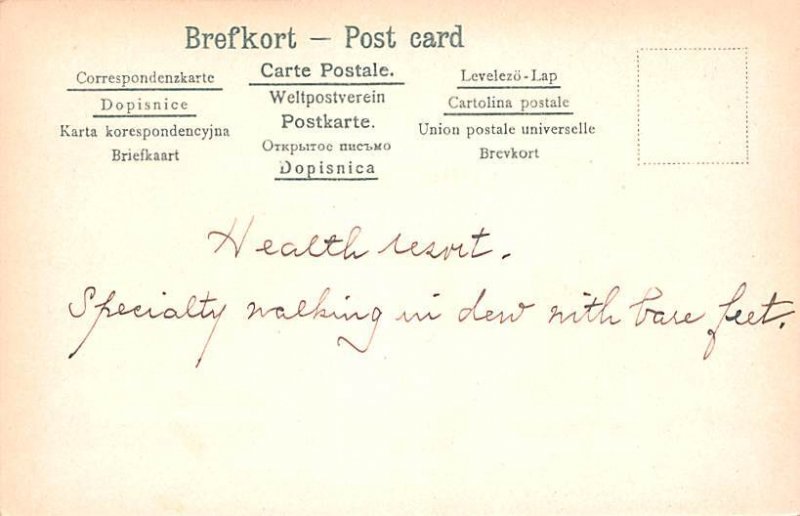 Brefkort — Post card
Correspondenzkarte
Dopisnice
Karta korespondencyjna
Briefkaart
Carte Postale.
Weltpostverein
Postkarte.
Открытое письмо
Dopisnica
Levelező-Lap
Cartolina postale
Union postale universelle
Brevkort
Health resort.
Specialty walking in dew with bare feet.